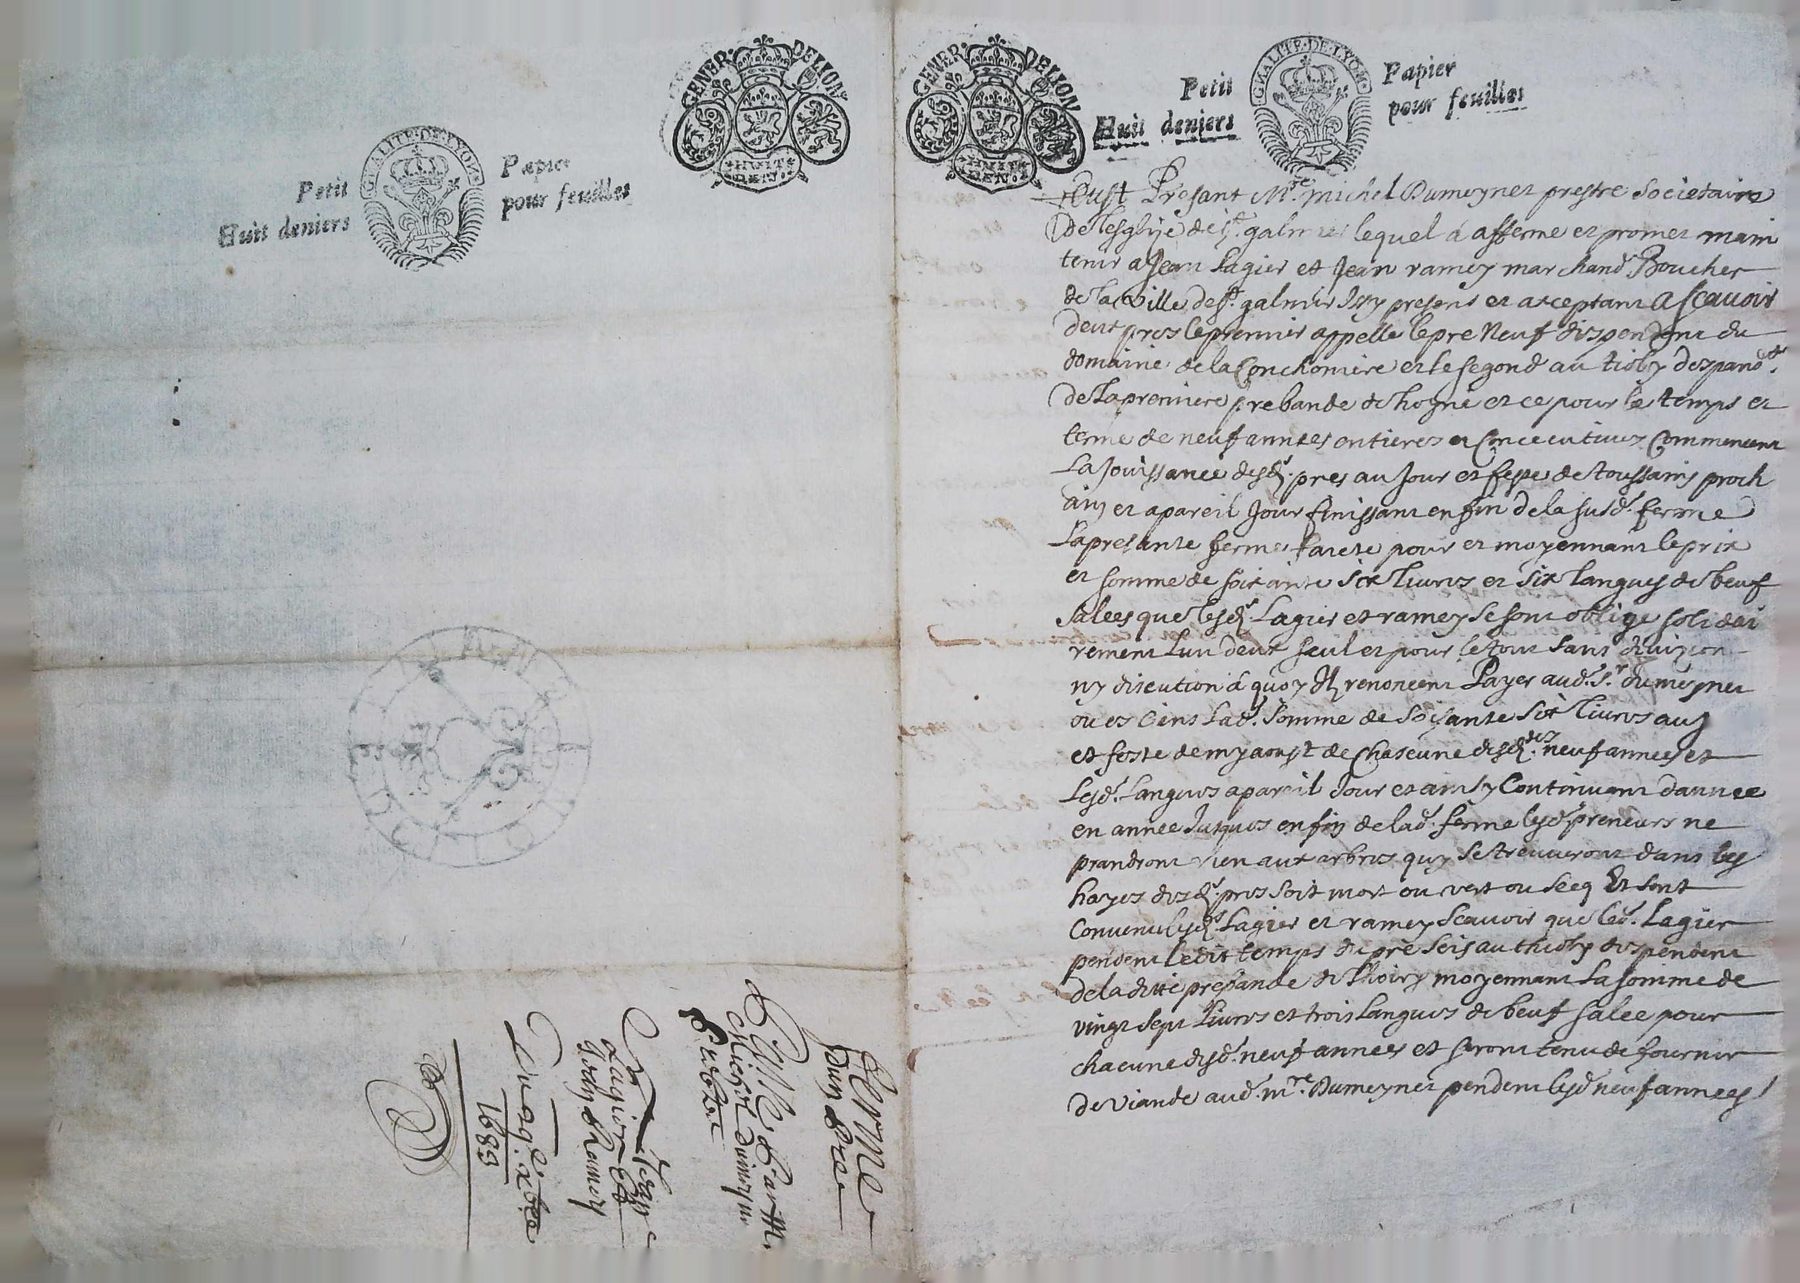 GENER. DE LION
HUIT
DEN.
GENER. DE LION
HUIT
DEN.
Petit
Huit deniers
GNALITE·DE·LYON
Papier
pour feuilles
Petit
Huit deniers
GNALITE·DE·LYON
Papier
pour feuilles
Fust Presant Mre. michel Dumeynet prestre Societaire
De Lesglize de st. galmier lequel a afferme et promet main
tenir a Jean Lagier et Jean ramey marchand Boucher
de la Ville de st. galmier Issy presens et acceptant a scauoir
deux pres le premier appelle le pre Neuf despendent du
domaine de la Conchoniere et le segond au
De La premiere prebande de et ce pour le temps et
terme de neuf annees entieres et Concecutiues Commencent
La Jouissance desd. pres au Jour et feste de toussains proch
ain et a pareil Jour finissant en fin de la susd. ferme
La presante ferme faicte pour et moyennant le prix
et somme de soixante six liures et six langues de beuf
salees que lesd. Lagier et ramey se sont oblige solidai
rement lun deux seul et pour le tout sans diuizion
ny discution a quoy Ils renoncent Payer aud. sr. dumeynet
ou es siens lad. somme de soisante six liures au
et feste de my aoust de Chascune desd. neuf annees et
Lesd. Langues a pareil Jour et ainsy Continuant dannee
en annee Jusques en fin de lad. ferme lesd. preneurs ne
prandront rien aux arbres quy se treuueront dans les
hayes desd. pres soit mort ou vert ou secq Et sont
Conuenu lesd. Lagier et ramey Scauoir que led. Lagier
pendent ledit temps du pre seis au despendent
de la ditte prebande de moyennant La somme de
vingt sept Liures et trois Langues de beuf salee pour
chacune desd. neuf annees et seront tenu de fournir
de viande aud. mre. Dumeynet pendent lesd. neuf annees
ferme
dun pre
Michel dumeynet
Jean
Lagier et
Jean Ramey
1689